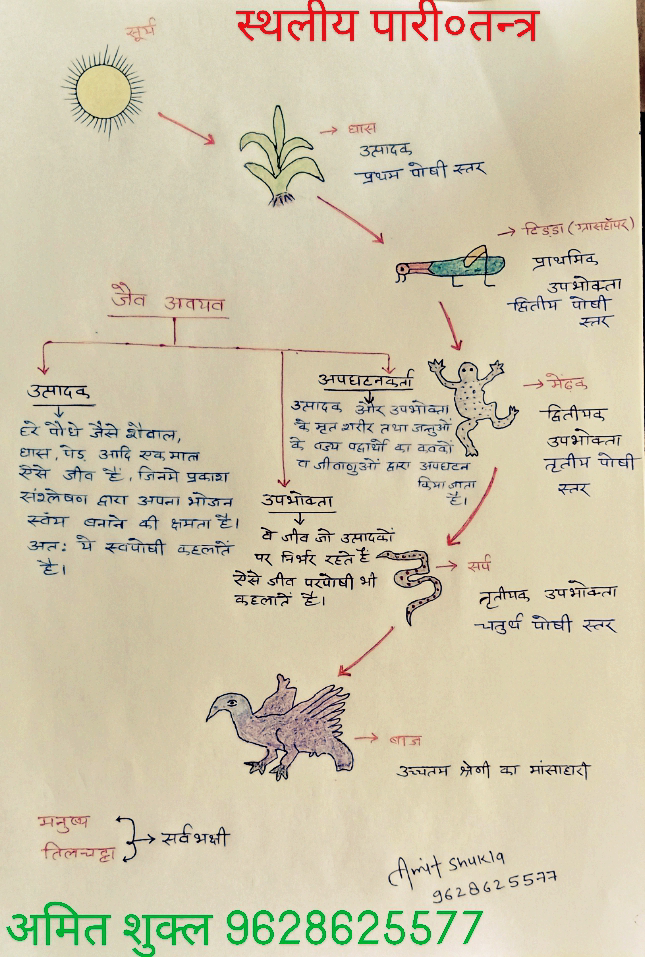 स्थलीय पारी०तन्त्र
सूर्य
→ घास
उत्पादक
प्रथम पोषी स्तर
→ टिड्डा (ग्रासहॉपर)
प्राथमिक
उपभोक्ता
द्वितीय पोषी
स्तर
जैव अवयव
उत्पादक
हरे पौधे जैसे शैवाल,
घास, पेड आदि एक मात्र
ऐसे जीव हैं, जिनमे प्रकाश
संश्लेषण द्वारा अपना भोजन
स्वंम बनाने की क्षमता है।
अतः ये स्वपोषी कहलातें
है।
अपघटनकर्ता
उत्पादक और उपभोक्ता
के मृत शरीर तथा जन्तुओं
के पदार्थो का कवकों
व जीवाणुओं द्वारा अपघटन
किया जाता
है।
उपभोक्ता
वे जीव जो उत्पादकों
पर निर्भर रहते है
ऐसे जीव परपोषी भी
कहलातें है।
→ मेंढक
द्वितीयक
उपभोक्ता
तृतीय पोषी
स्तर
→ सर्प
तृतीयक उपभोक्ता
चतुर्थ पोषी स्तर
→ बाज
उच्चतम श्रेणी का मांसाहारी
मनुष्य
तिलचट्टा
→ सर्वभक्षी
Amit Shukla
9628625577
अमित शुक्ल 9628625577